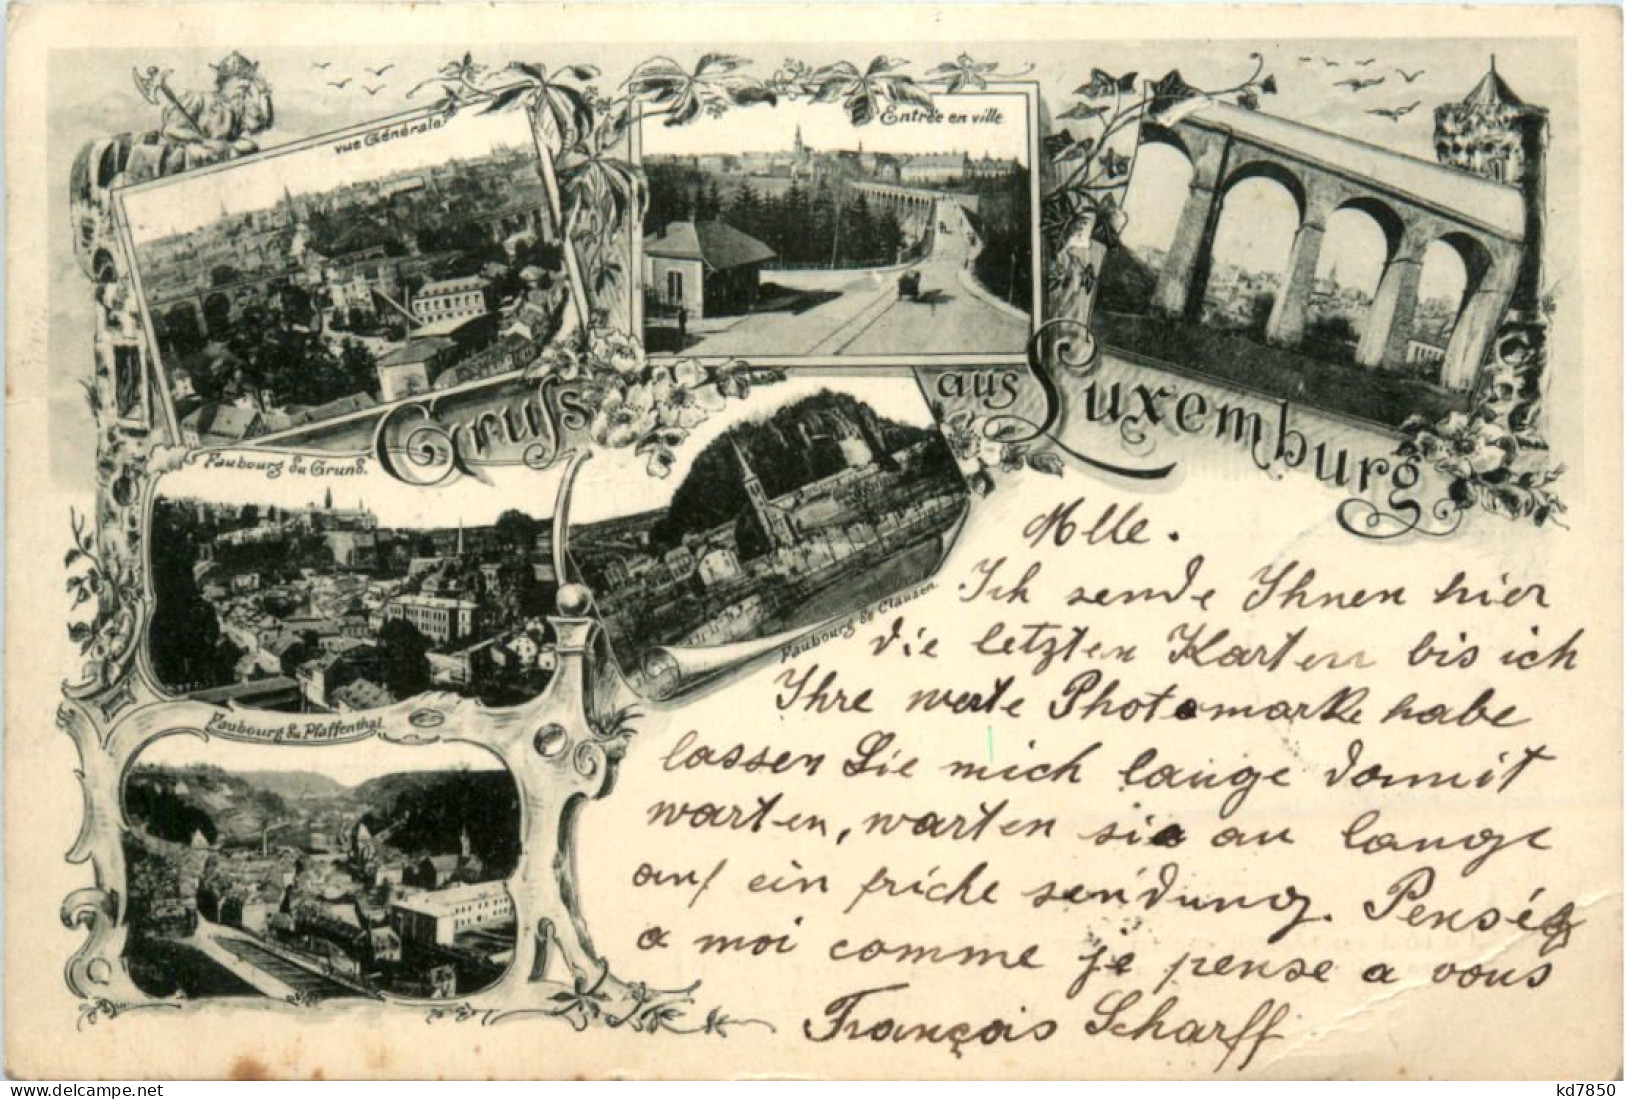 vue Générale.
Entrée en ville
Gruss aus Luxemburg
Faubourg du Grund.
Faubourg de Clausen.
Faubourg du Pfaffenthal.
Mlle.
Ich sende Ihnen hier
die letzten Karten bis ich
Ihre werte Photomarke habe
lassen Sie mich lange damit
warten, warten sie au lange
auf ein friche sendung. Penséz
a moi comme je pense a vous
François Scharff
www.delcampe.net
kd7850